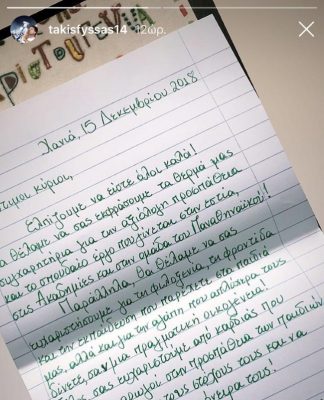 takisfyssas14 12ωρ.
ΧΡΙΣΤΟΥΓΕΝΝΑ
Χανιά, 15 Δεκεμβρίου 2018
κύριοι,
Ελπίζουμε να είστε όλοι καλά!
θέλαμε να σας εκφράσουμε τα θερμά μας
συγχαρητήρια για την αξιόλογη προσπάθεια
και το σπουδαίο έργο που γίνεται στην εστία,
στις Ακαδημίες και στην ομάδα του Παναθηναϊκού!!
Παράλληλα, θα θέλαμε να σας
ευχαριστήσουμε για τη φιλοξενία, τη φροντίδα
και την εκπαίδευση που παρέχετε στα παιδιά
μας, αλλά και για την αγάπη που απλόχερα τους
δίνετε, σαν μια πραγματική οικογένεια!
σας ευχαριστούμε από καρδιάς που
αρωγοί στην προσπάθεια των παιδιών
τους στόχους τους και να
όνειρα τους!